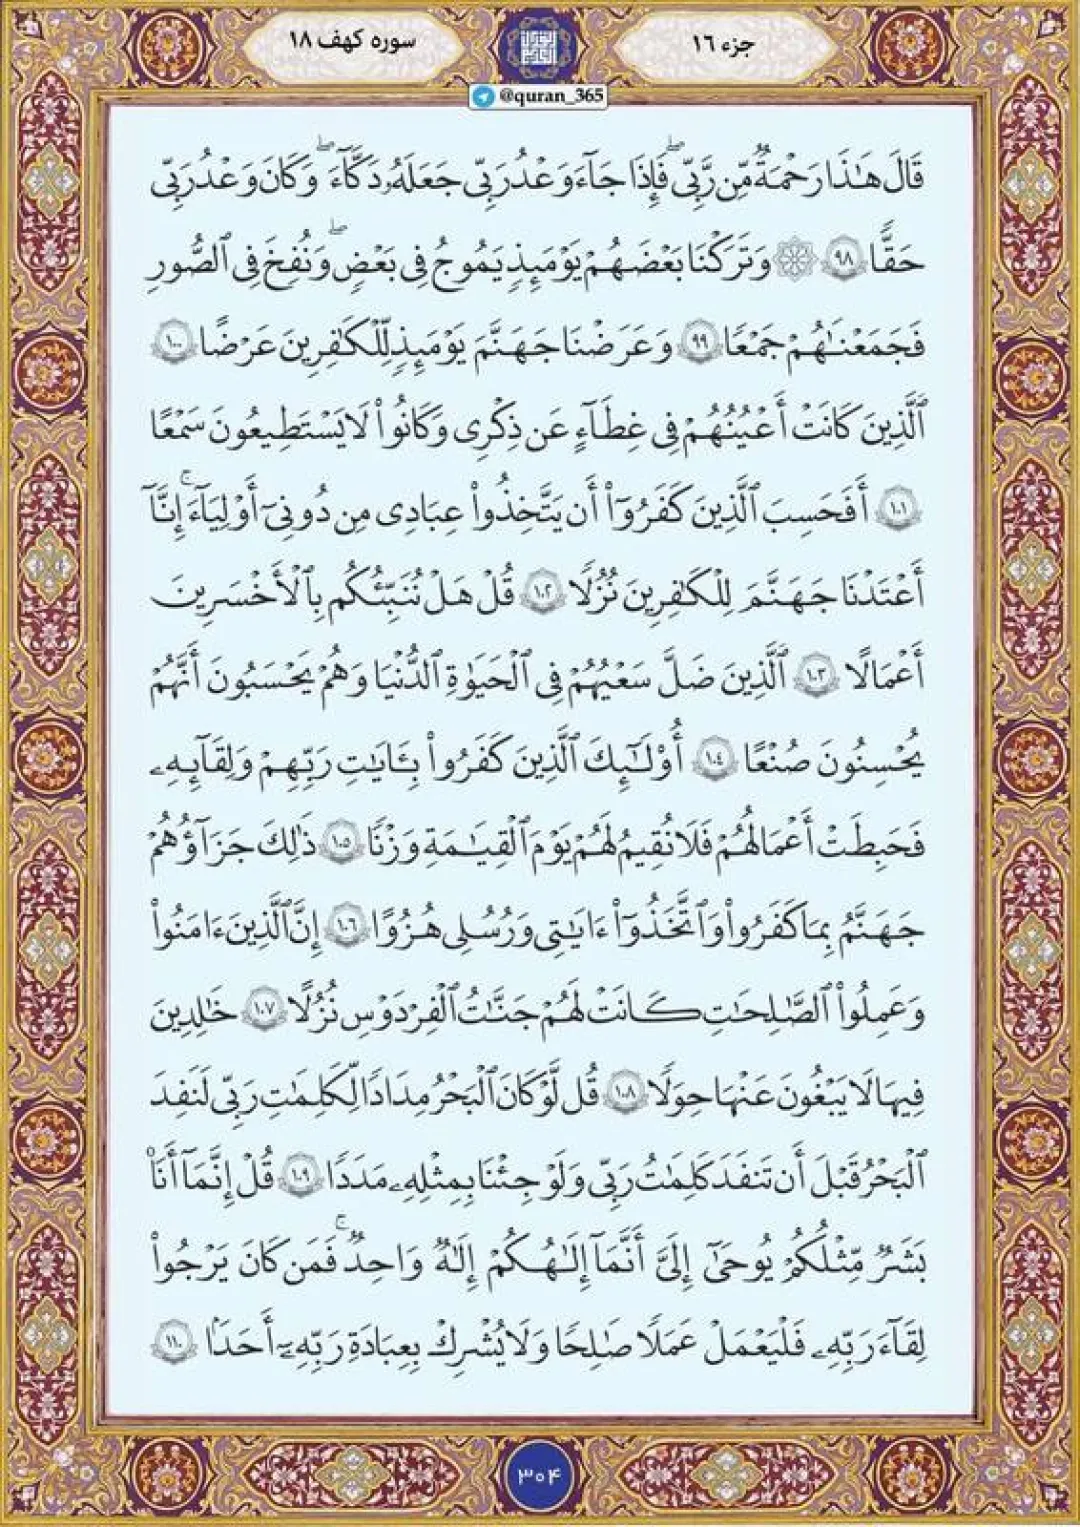 جزء ۱۶
سوره کهف ۱۸
@quran_365
قَالَ هَٰذَا رَحْمَةٌ مِّن رَّبِّي ۖ فَإِذَا جَآءَ وَعْدُ رَبِّي جَعَلَهُۥ دَكَّآءَ ۖ وَكَانَ وَعْدُ رَبِّي
حَقًّا ٩٨ ۞ وَتَرَكْنَا بَعْضَهُمْ يَوْمَئِذٍ يَمُوجُ فِي بَعْضٍ ۖ وَنُفِخَ فِي ٱلصُّورِ
فَجَمَعْنَٰهُمْ جَمْعًا ٩٩ وَعَرَضْنَا جَهَنَّمَ يَوْمَئِذٍ لِّلْكَٰفِرِينَ عَرْضًا ١٠٠
ٱلَّذِينَ كَانَتْ أَعْيُنُهُمْ فِي غِطَآءٍ عَن ذِكْرِي وَكَانُوا۟ لَا يَسْتَطِيعُونَ سَمْعًا
١٠١ أَفَحَسِبَ ٱلَّذِينَ كَفَرُوٓا۟ أَن يَتَّخِذُوا۟ عِبَادِي مِن دُونِيٓ أَوْلِيَآءَ ۚ إِنَّآ
أَعْتَدْنَا جَهَنَّمَ لِلْكَٰفِرِينَ نُزُلًا ١٠٢ قُلْ هَلْ نُنَبِّئُكُم بِٱلْأَخْسَرِينَ
أَعْمَٰلًا ١٠٣ ٱلَّذِينَ ضَلَّ سَعْيُهُمْ فِي ٱلْحَيَوٰةِ ٱلدُّنْيَا وَهُمْ يَحْسَبُونَ أَنَّهُمْ
يُحْسِنُونَ صُنْعًا ١٠٤ أُو۟لَٰٓئِكَ ٱلَّذِينَ كَفَرُوا۟ بِـَٔايَٰتِ رَبِّهِمْ وَلِقَآئِهِۦ
فَحَبِطَتْ أَعْمَٰلُهُمْ فَلَا نُقِيمُ لَهُمْ يَوْمَ ٱلْقِيَٰمَةِ وَزْنًا ١٠٥ ذَٰلِكَ جَزَآؤُهُمْ
جَهَنَّمُ بِمَا كَفَرُوا۟ وَٱتَّخَذُوٓا۟ ءَايَٰتِي وَرُسُلِي هُزُوًا ١٠٦ إِنَّ ٱلَّذِينَ ءَامَنُوا۟
وَعَمِلُوا۟ ٱلصَّٰلِحَٰتِ كَانَتْ لَهُمْ جَنَّٰتُ ٱلْفِرْدَوْسِ نُزُلًا ١٠٧ خَٰلِدِينَ
فِيهَا لَا يَبْغُونَ عَنْهَا حِوَلًا ١٠٨ قُل لَّوْ كَانَ ٱلْبَحْرُ مِدَادًا لِّكَلِمَٰتِ رَبِّي لَنَفِدَ
ٱلْبَحْرُ قَبْلَ أَن تَنفَدَ كَلِمَٰتُ رَبِّي وَلَوْ جِئْنَا بِمِثْلِهِۦ مَدَدًا ١٠٩ قُلْ إِنَّمَآ أَنَا۠
بَشَرٌ مِّثْلُكُمْ يُوحَىٰٓ إِلَيَّ أَنَّمَآ إِلَٰهُكُمْ إِلَٰهٌ وَٰحِدٌ ۖ فَمَن كَانَ يَرْجُوا۟
لِقَآءَ رَبِّهِۦ فَلْيَعْمَلْ عَمَلًا صَٰلِحًا وَلَا يُشْرِكْ بِعِبَادَةِ رَبِّهِۦٓ أَحَدًۢا ١١٠
۳۰۴